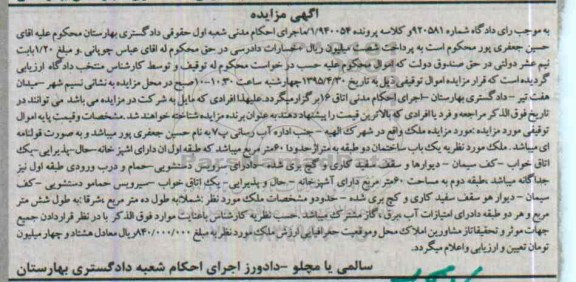 آگهی مزایده
به موجب رای دادگاه شماره ۹۲۰۵۸۱ و کلاسه پرونده ۱/۹۴۰۰۵۴ اجرای احکام مدنی شعبه اول حقوقی دادگستری بهارستان محکوم علیه اقای
حسین جعفری پور محکوم است به پرداخت شصت میلیون ریال +خسارات دادرسی در حق محکوم له اقای عباس چوپانی .و مبلغ ۱/۲۰ بابت
نیم عشر دولتی در حق صندوق دولت که اموال محکوم علیه حسب در خواست محکوم له توقیف و توسط کارشناس منتخب دادگاه ارزیابی
گردیده است که قرار مزایده اموال توقیفی ذیل به تاریخ ۱۳۹۵/۴/۳۰ چهارشنبه ساعت ۱۰:۳۰-۱۰ صبح در محل مزایده به نشانی نسیم شهر -میدان
هفت تیر - دادگستری بهارستان -اجرای احکام مدنی اتاق ۱۶ برگزار میگردد.علیهذا افرادی که مایل به شرکت در مزایده می باشد می توانند در
تاریخ فوق الذکر مراجعه و فرد یا افرادی که بالاترین قیمت را پیشنهاد دهند به عنوان برنده مزایده شناخته خواهند شد.مشخصات وقیمت پایه اموال
توقیفی مورد مزایده :مورد مزایده ملک واقع در شهرک الهیه - جنب اداره آب رسانی پ۷ به نام حسین جعفری پور میباشد و به صورت قولنامه
ای میباشد. ملک مورد نظر به یک باب ساختمان دو طبقه به متراژ حدودا ۶۰ متر مربع میباشد که طبقه اول ان دارای اشپز خانه-حال-پذیرایی-یک
اتاق خواب -کف سیمان - دیوارها و سقف سفید کاری و کچ بری شده -دادرای سرویس دستشویی -حمام و درب ورودی طبقه اول نیز
جداگانه میباشد .طبقه دوم به مساحت ۶۰ متر مربع دارای آشپزخانه -حال و پذیرایی -یک اتاق خواب -سیرویس حمامو دستشویی -کف
سیمان - دیوار هو سقف سفید کاری و کچ بری شده - حدودو مشخصات ملک مورد نظر :شملا:به طول ده متر مربع شرقا:به طول شش متر
مربع و هر دو طبقه دادرای امتیازات آب ،برق، گاز مشترک میباشد .حسب نظریه کارشناس باعنایت موارد فوق الذکر با در نظر قراردادن جمیع
جهات موثر و تحقیقاتاز مشاورین املاک محل و موقعیت جغرافیایی ارزش ملک مورد نظر به مبلغ ۸۴۰/۰۰۰/۰۰۰ ریال معادل هشتاد و چهار میلیون
تومان تعیین و ارزیابی و اعلام میگردد.
سالمی یا مچلو -دادورز اجرای احکام شعبه دادگستری بهارستان